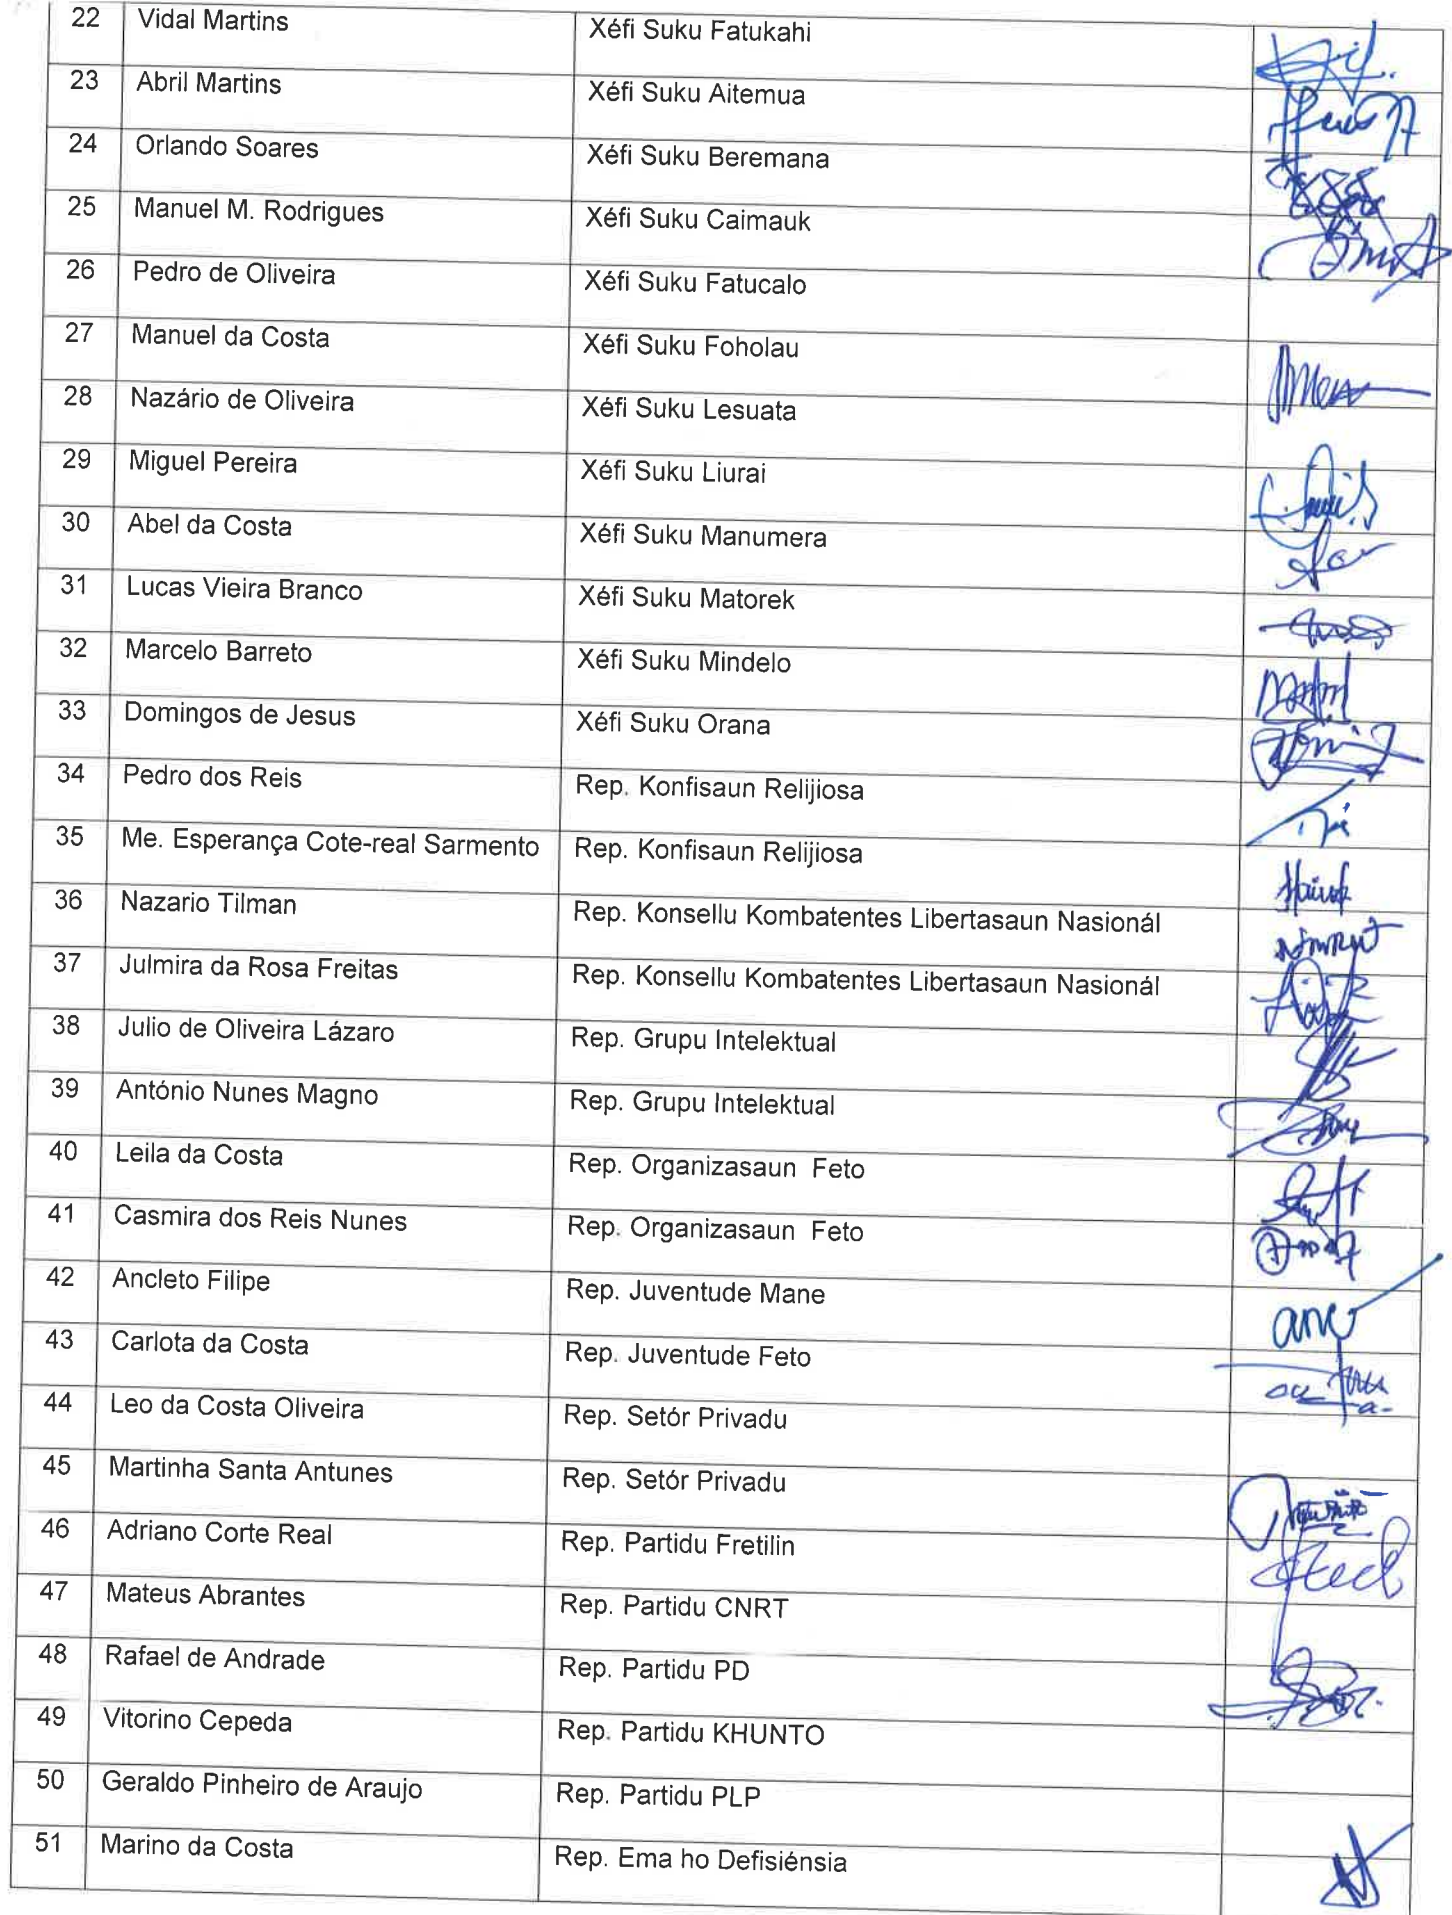 22 Vidal Martins Xéfi Suku Fatukahi
23 Abril Martins Xéfi Suku Aitemua
24 Orlando Soares Xéfi Suku Beremana
25 Manuel M. Rodrigues Xéfi Suku Caimauk
26 Pedro de Oliveira Xéfi Suku Fatucalo
27 Manuel da Costa Xéfi Suku Foholau
28 Nazário de Oliveira Xéfi Suku Lesuata
29 Miguel Pereira Xéfi Suku Liurai
30 Abel da Costa Xéfi Suku Manumera
31 Lucas Vieira Branco Xéfi Suku Matorek
32 Marcelo Barreto Xéfi Suku Mindelo
33 Domingos de Jesus Xéfi Suku Orana
34 Pedro dos Reis Rep. Konfisaun Relijiosa
35 Me. Esperança Cote-real Sarmento Rep. Konfisaun Relijiosa
36 Nazario Tilman Rep. Konsellu Kombatentes Libertasaun Nasionál
37 Julmira da Rosa Freitas Rep. Konsellu Kombatentes Libertasaun Nasionál
38 Julio de Oliveira Lázaro Rep. Grupu Intelektual
39 António Nunes Magno Rep. Grupu Intelektual
40 Leila da Costa Rep. Organizasaun Feto
41 Casmira dos Reis Nunes Rep. Organizasaun Feto
42 Ancleto Filipe Rep. Juventude Mane
43 Carlota da Costa Rep. Juventude Feto
44 Leo da Costa Oliveira Rep. Setór Privadu
45 Martinha Santa Antunes Rep. Setór Privadu
46 Adriano Corte Real Rep. Partidu Fretilin
47 Mateus Abrantes Rep. Partidu CNRT
48 Rafael de Andrade Rep. Partidu PD
49 Vitorino Cepeda Rep. Partidu KHUNTO
50 Geraldo Pinheiro de Araujo Rep. Partidu PLP
51 Marino da Costa Rep. Ema ho Defisiénsia